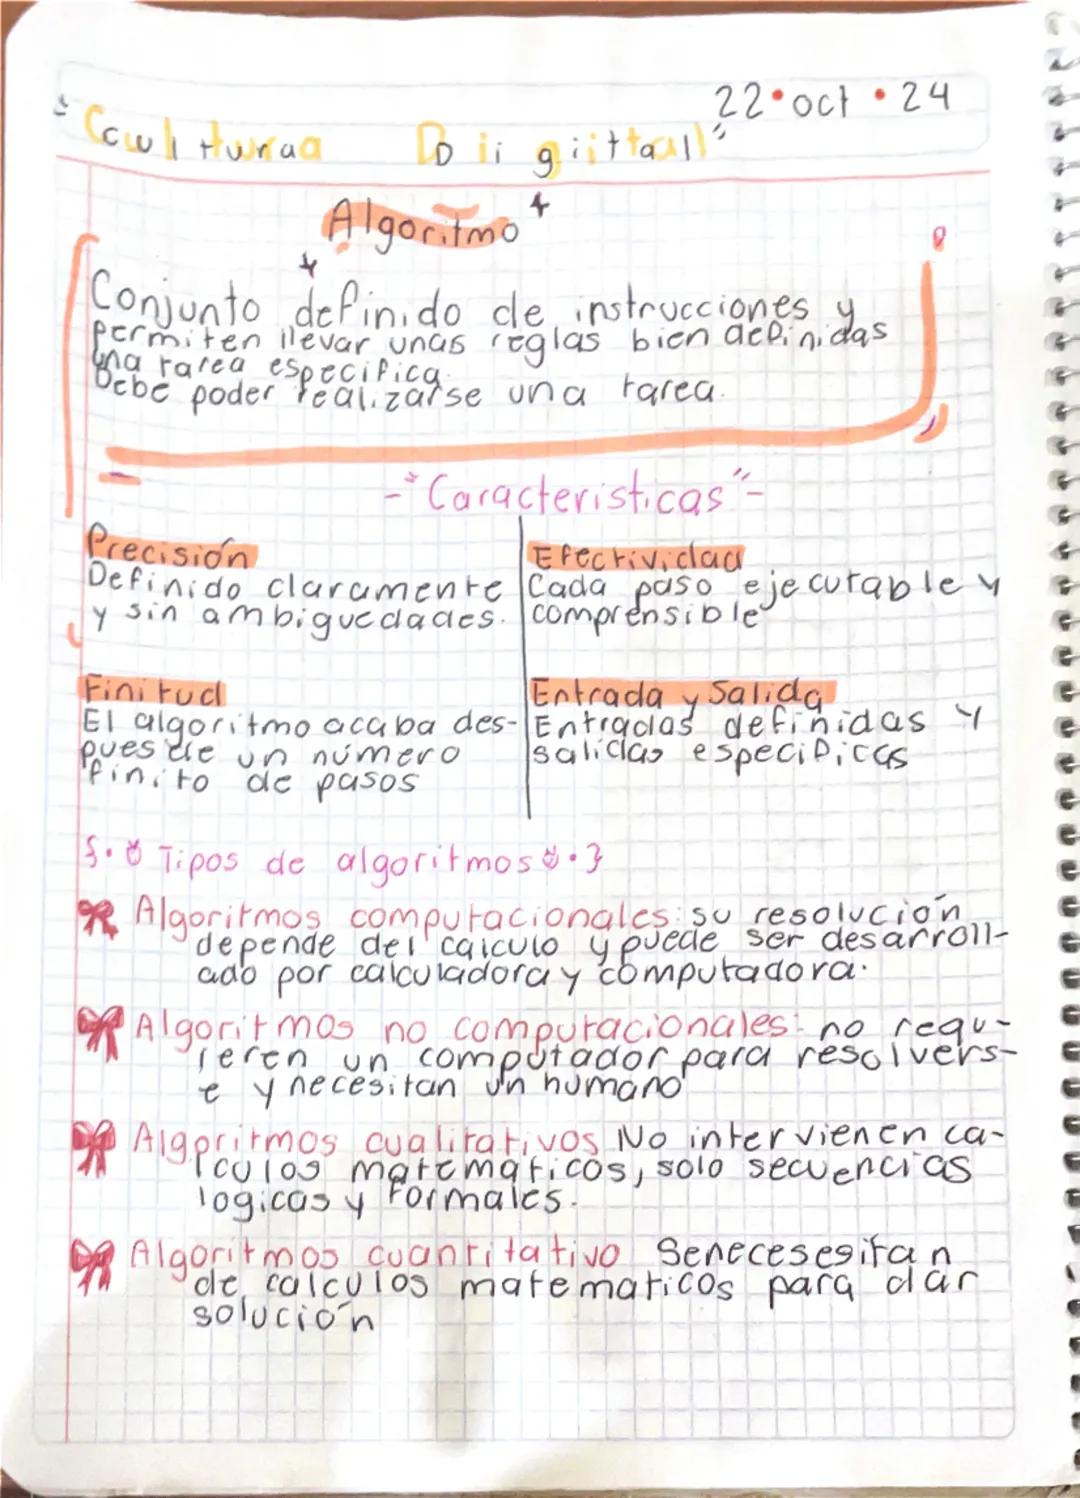 22•oct•24
"Cultura Digital"
Algoritmo
Conjunto definido de instrucciones y
permiten llevar unas reglas bien definidas
una tarea especifica.
Debe poder realizarse una tarea.
-"Caracteristicas"-
Precisión
Definido claramente
y sin ambiguedades.
Efectividad
Cada paso ejecutable y
comprensible
Finitud
El algoritmo acaba des-
pues de un número
finito de pasos
Entrada y Salida
Entradas definidas y
salidas especificas
Tipos de algoritmos
Algoritmos computacionales: su resolución
depende del calculo y puede ser desarroll-
ado por calculadora y computadora.
Algoritmos no computacionales: no requ-
ieren un computador para resolvers-
e y necesitan un humano
Algoritmos cualitativos No intervienen ca-
lculos matematicos, solo secuencias
logicas y formales.
Algoritmos cuantitativo Senecesesitan
de calculos matematicos para dar
solución